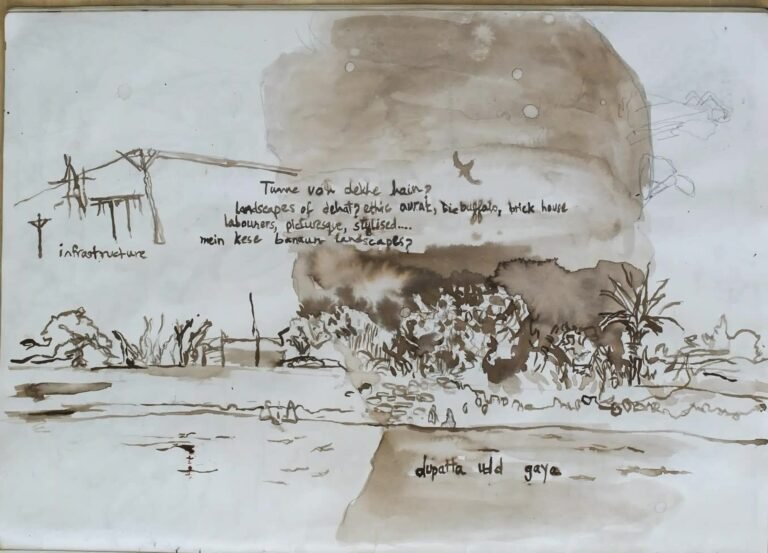 Tumne voh dekhe hain?
landscapes of dehat? ethic aurat, big buffalo, brick house
labourers, picturesque, stylised....
mein kese banaun landscapes?
infrastructure
dupatta udd gaya